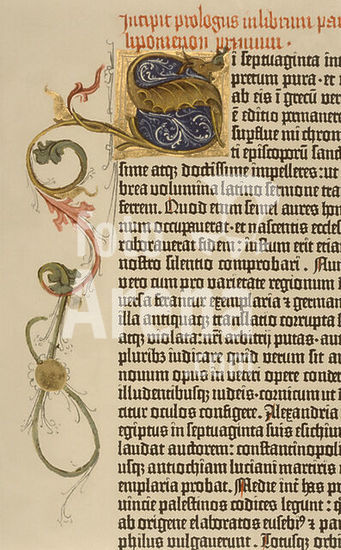 Incipit prologus in librum par
lipomenon primum.
Si septuaginta int
pretum pura · et
ab eis ī grecū ver
ē editio permaneret
supflue mi chrom
ti episcoporū sand
sime atq; doctissime impelleres: ut
brea volumina latino sermone tra
ferrem. Quod enim semel aures hom
num occupauerat · et nascentis eccle
roborauerat fidem: iustum erit etia
nostro silentio comprobari. Nunc
vero cum pro varietate regionum
uersa ferantur exemplaria ⁊ german
illa antiquaq; translatio corrupta
atq; violata: nr̄i arbitrij putas · aut
pluribȝ iudicare quid verum sit au
nouum opus in veteri opere conder
illudentibusq; iudeis · cornicum ut
citur oculos configere. Alexandria
egiptus in septuaginta suis esichiu
laudat auctorem: constantinopolis
usq; antiochiam luciani martiris
emplaria probat. Medie int̄ has pro
uincie palestinos codices legunt: q
ab origene elaboratos eusebiꝰ ⁊ pam
philus vulgauerunt. Totusq; orbis